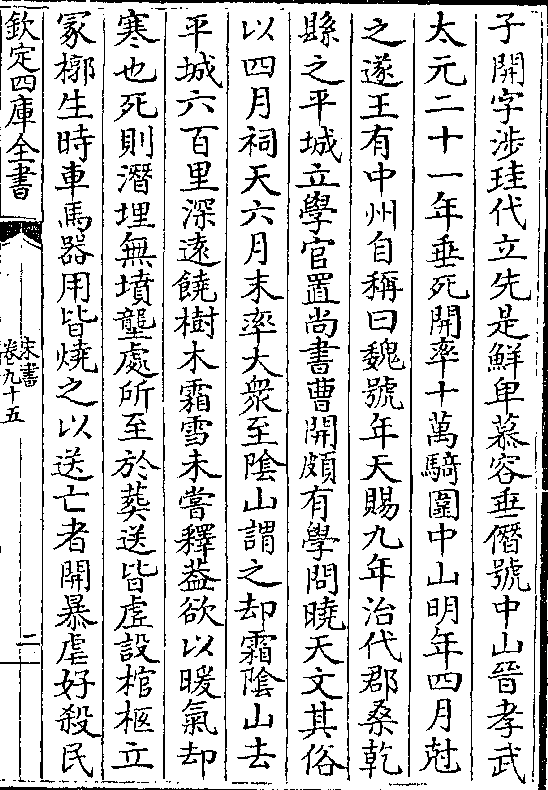 子開字涉珪代立先是鮮卑慕容垂僭號中山晉孝武
太元二十一年垂死開率十萬騎圍中山明年四月尅
之遂王有中州自稱曰魏號年天賜九年治代郡桑乾
縣之平城立學官置尚書曹開頗有學問曉天文其俗
以四月祠天六月末率大衆至隂山謂之却霜隂山去
平城六百里深逺饒樹木霜雪未嘗釋葢欲以暖氣却
寒也死則潛埋無墳壟處所至於葬送皆虛設棺柩立
冢槨生時車馬器用皆燒之以送亡者開暴虐好殺民
欽定四庫全書
宋書
卷九十五
二